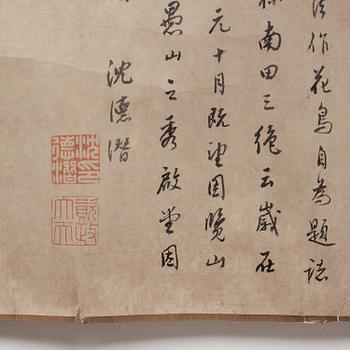 作花鳥自為題誌
南田三絶云歲在
元十月既望因覽山
愚山之秀啟堂因
沈德潛
沈印
德潛